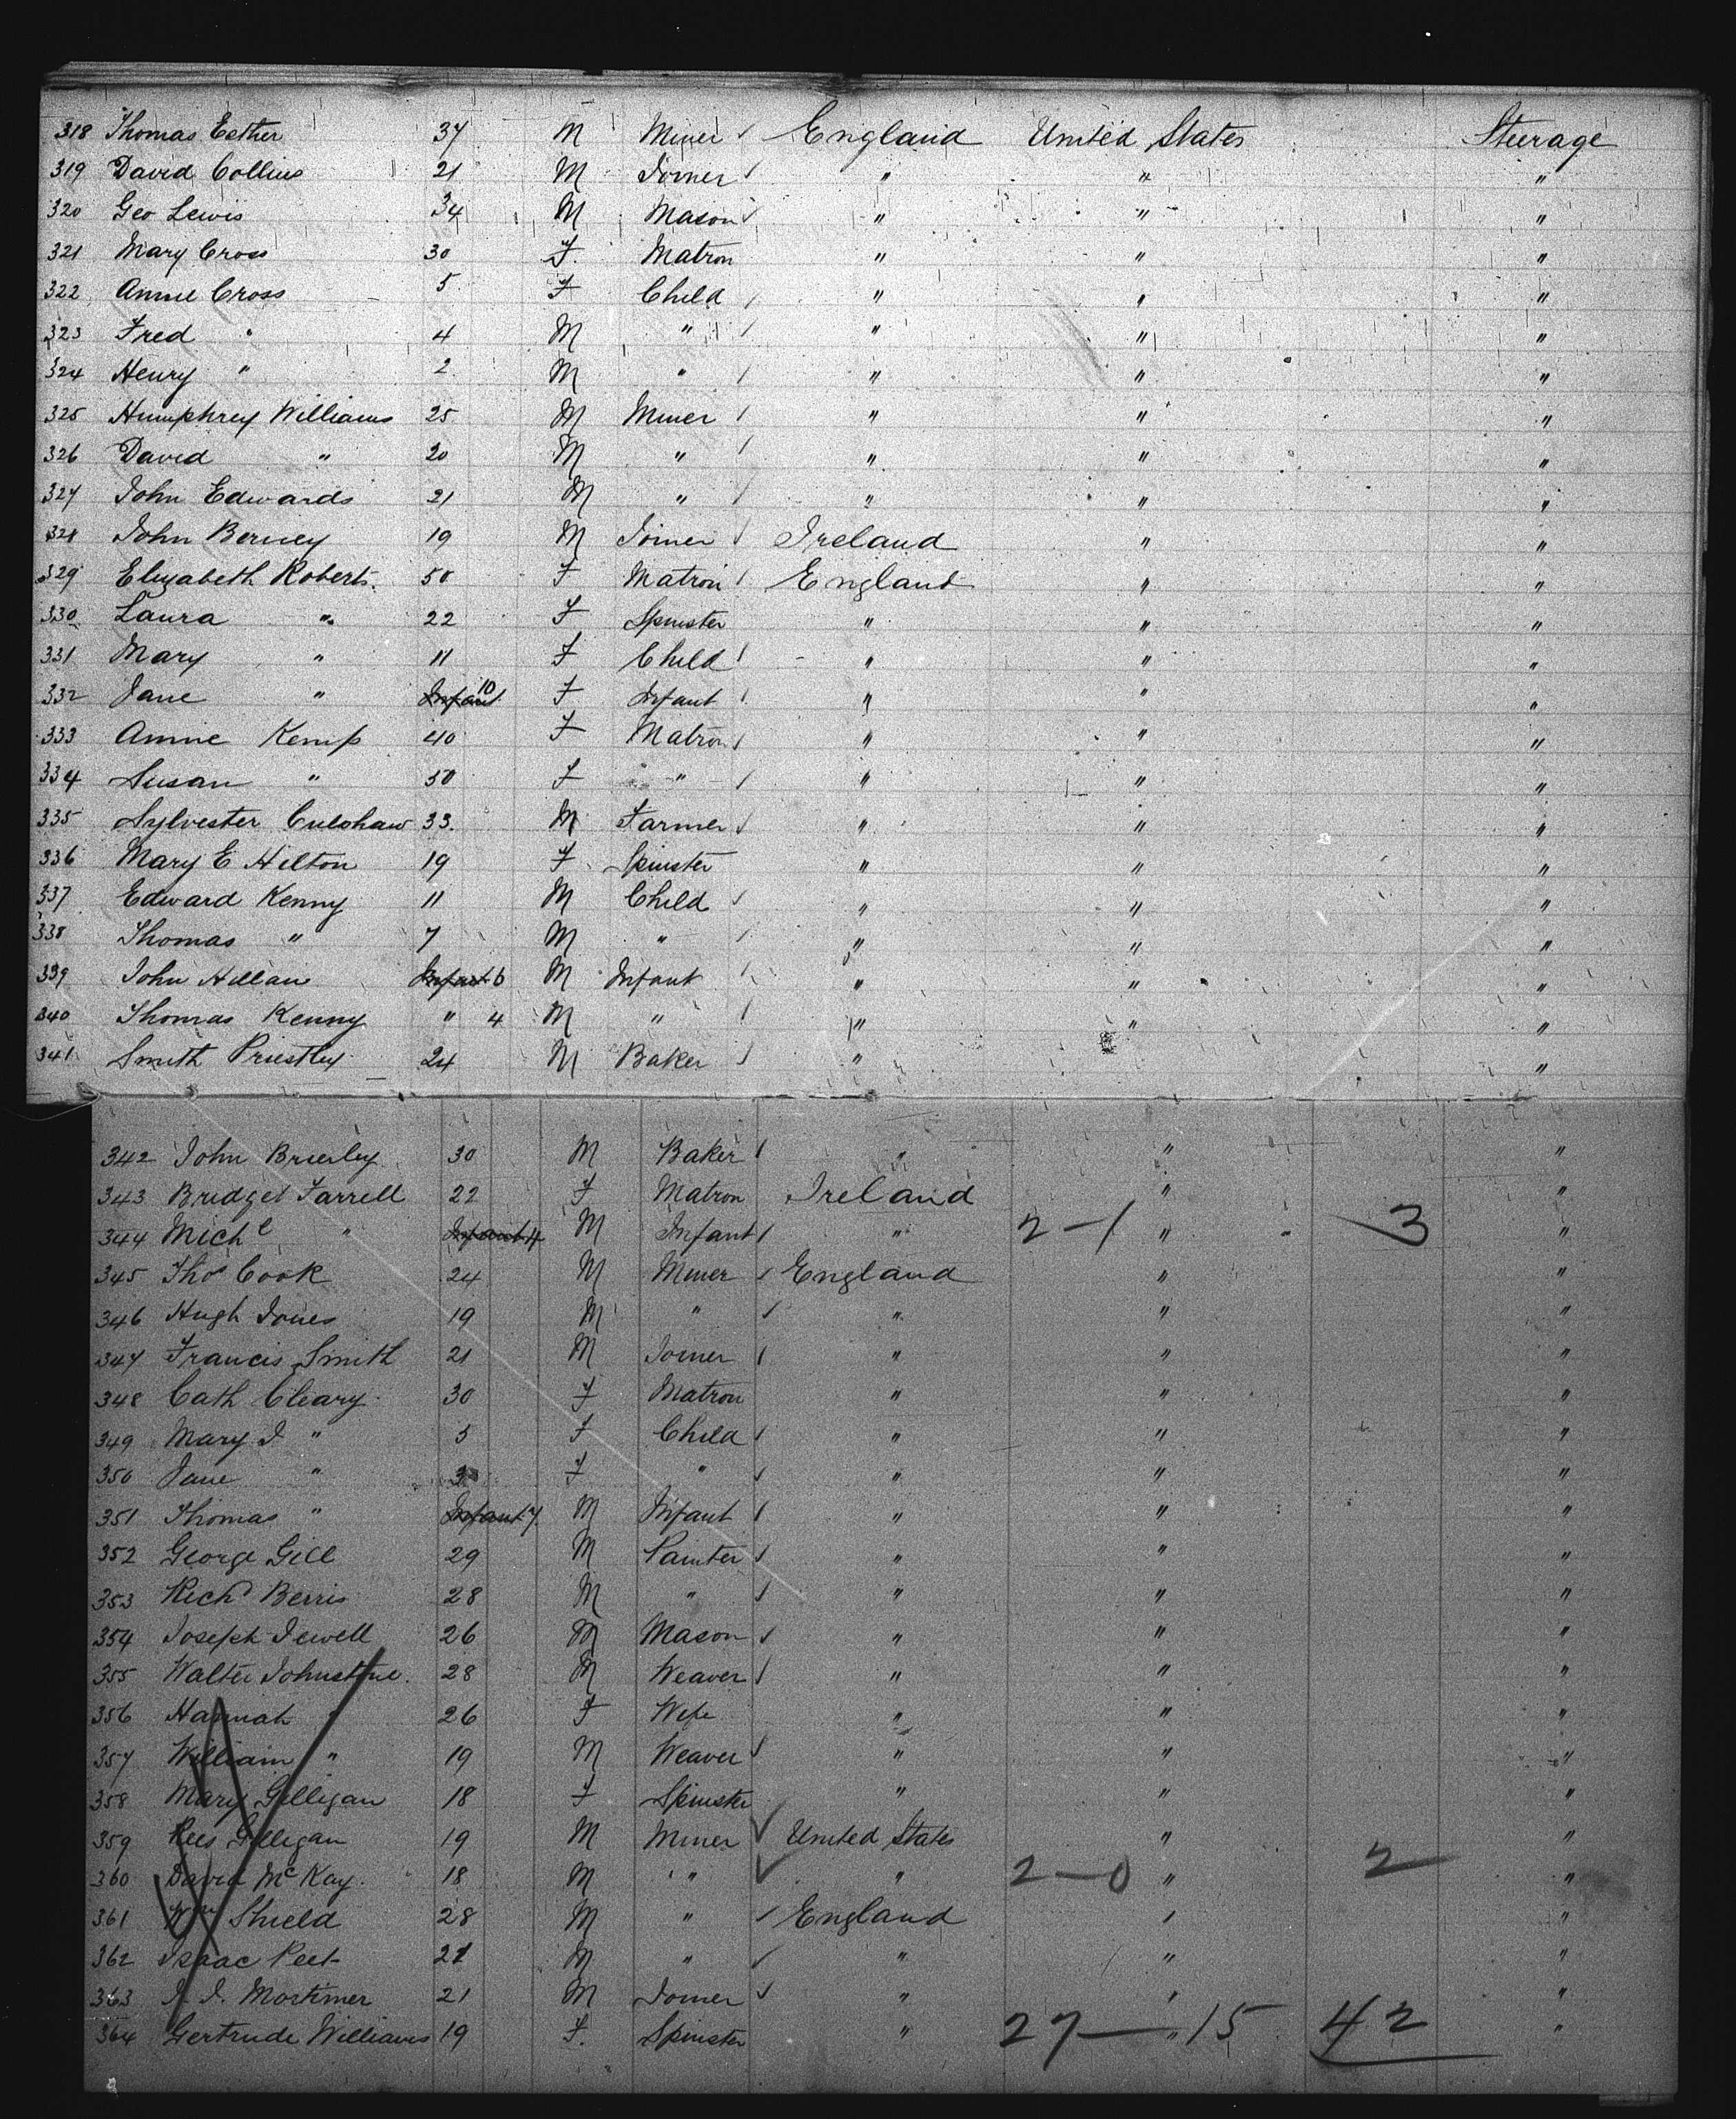 318 Thomas Esther 37 M Miner England United States Steerage
319 David Collins 21 M Joiner " " "
320 Geo Lewis 34 M Mason " " "
321 Mary Cross 30 F. Matron " " "
322 Annie Cross 5 F Child " " "
323 Fred " 4 M " " " "
324 Henry " 2 M " " " "
325 Humphrey Williams 25 M Miner " " "
326 David " 20 M " " " "
327 John Edwards 21 M " " " "
328 John Berney 19 M Joiner Ireland " "
329 Elizabeth Roberts. 50 F Matron England " "
330 Laura " 22 F Spinster " " "
331 Mary " 11 F Child " " "
332 Jane " Infant 10 F Infant " " "
333 Annie Kemp 40 F Matron " " "
334 Susan " 50 F " " " "
335 Sylvester Culshaw 33. M Farmer " " "
336 Mary E Hilton 19 F Spinster " " "
337 Edward Kenny 11 M Child " " "
338 Thomas " 7 M " " " "
339 John Infant 6 M Infant " " "
340 Thomas Kenny " 4 M " " " "
341 Smith Priestley 24 M Baker " " "
342 John Brierley 30 M Baker " " "
343 Bridget Farrell 22 F Matron Ireland " "
344 Michl " Infant 4 M Infant " 2-1 " 3 "
345 Thos Cook 24 M Miner England " "
346 Hugh Jones 19 M " " " "
347 Francis Smith 21 M Joiner " " "
348 Cath Cleary 30 F Matron " " "
349 Mary J " 5 F Child " " "
350 Jane " 3 F " " " "
351 Thomas " Infant 7 M Infant " " "
352 George Gill 29 M Painter " " "
353 Richd Berris 28 M " " " "
354 Joseph Jewell 26 M Mason " " "
355 Walter Johnstone. 28 M Weaver " " "
356 Hannah " 26 F Wife " " "
357 William " 19 M Weaver " " "
358 Mary Gilligan 18 F Spinster " " "
359 Rees Gilligan 19 M Miner United States " "
360 David McKay. 18 M " " 2-0 " 2 "
361 Wm Shield 28 M " England " "
362 Isaac Peet 21 M " " " "
363 J. J. Mortimer 21 M Joiner " " "
364 Gertrude Williams 19 F. Spinster " 27 — " 15 42 "